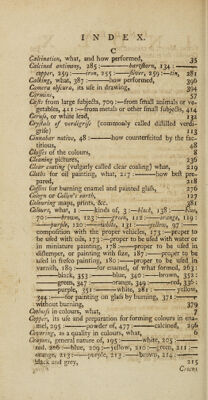 INDEX.
C
Calcination, what, and how performed, 35
Calcined antimony, 285:——bartshorn, 134:——
copper, 259:——iron, 255:——silver, 259:—tin, 281
Calking, what, 387:——how performed, 396
Camera obscura, its use in drawing, 394
Carmine, 57
Casts from large subjects, 709:—from small animals or ve-
getables, 411:—from metals or other small subjects, 414
Ceruss, or white lead, 132
Crystals of verdegrise (commonly called distilled verdi-
grise) 113
Cinnabar native, 48:——how counterfeited by the fac-
titious, 48
Classes of the colours, 8
Cleaning pictures, 236
Clear coating (vulgarly called clear coaling) what, 219
Cloths for oil painting, what, 217:——how best pre-
pared, 218
Coffins for burning enamel and painted glass, 276
Collyn or Collin's earth, 127
Colouring maps, prints, &c. 381
Colours, what, 1:——kinds of, 3:—black, 138:—blue,
70:——brown, 123:——green, 112:——orange, 119:
——purple, 120:—white, 131:—yellow, 97:—
composition with the proper vehicles, 173:—proper to
be used with oils, 173:—proper to be used with water or
in miniature painting, 178:—proper to be used in
distemper, or painting with size, 187:—proper to be
used in fresco painting, 180:—proper to be used in
varnish, 189:——for enamel, of what formed, 263:
——black, 353:——blue, 340:——brown, 352:
——green, 347:——orange, 349:——red, 336:
——purple, 351:——white, 281:——yellow,
344:——for painting on glass by burning, 372:——
without burning, 379
Contorsit in colours, what, 7
Copper, its use and preparation for forming colours in ena-
mel, 295:——powder of, 477:——calcined, 296
Covering, as a quality in colours, what, 6
Crayons, general nature of, 195:——white, 203:——
red, 206:—blue, 209:—yellow, 210:—green, 211:—
orange, 213:——purple, 213:——brown, 214:——
black and grey, 215
Crocus